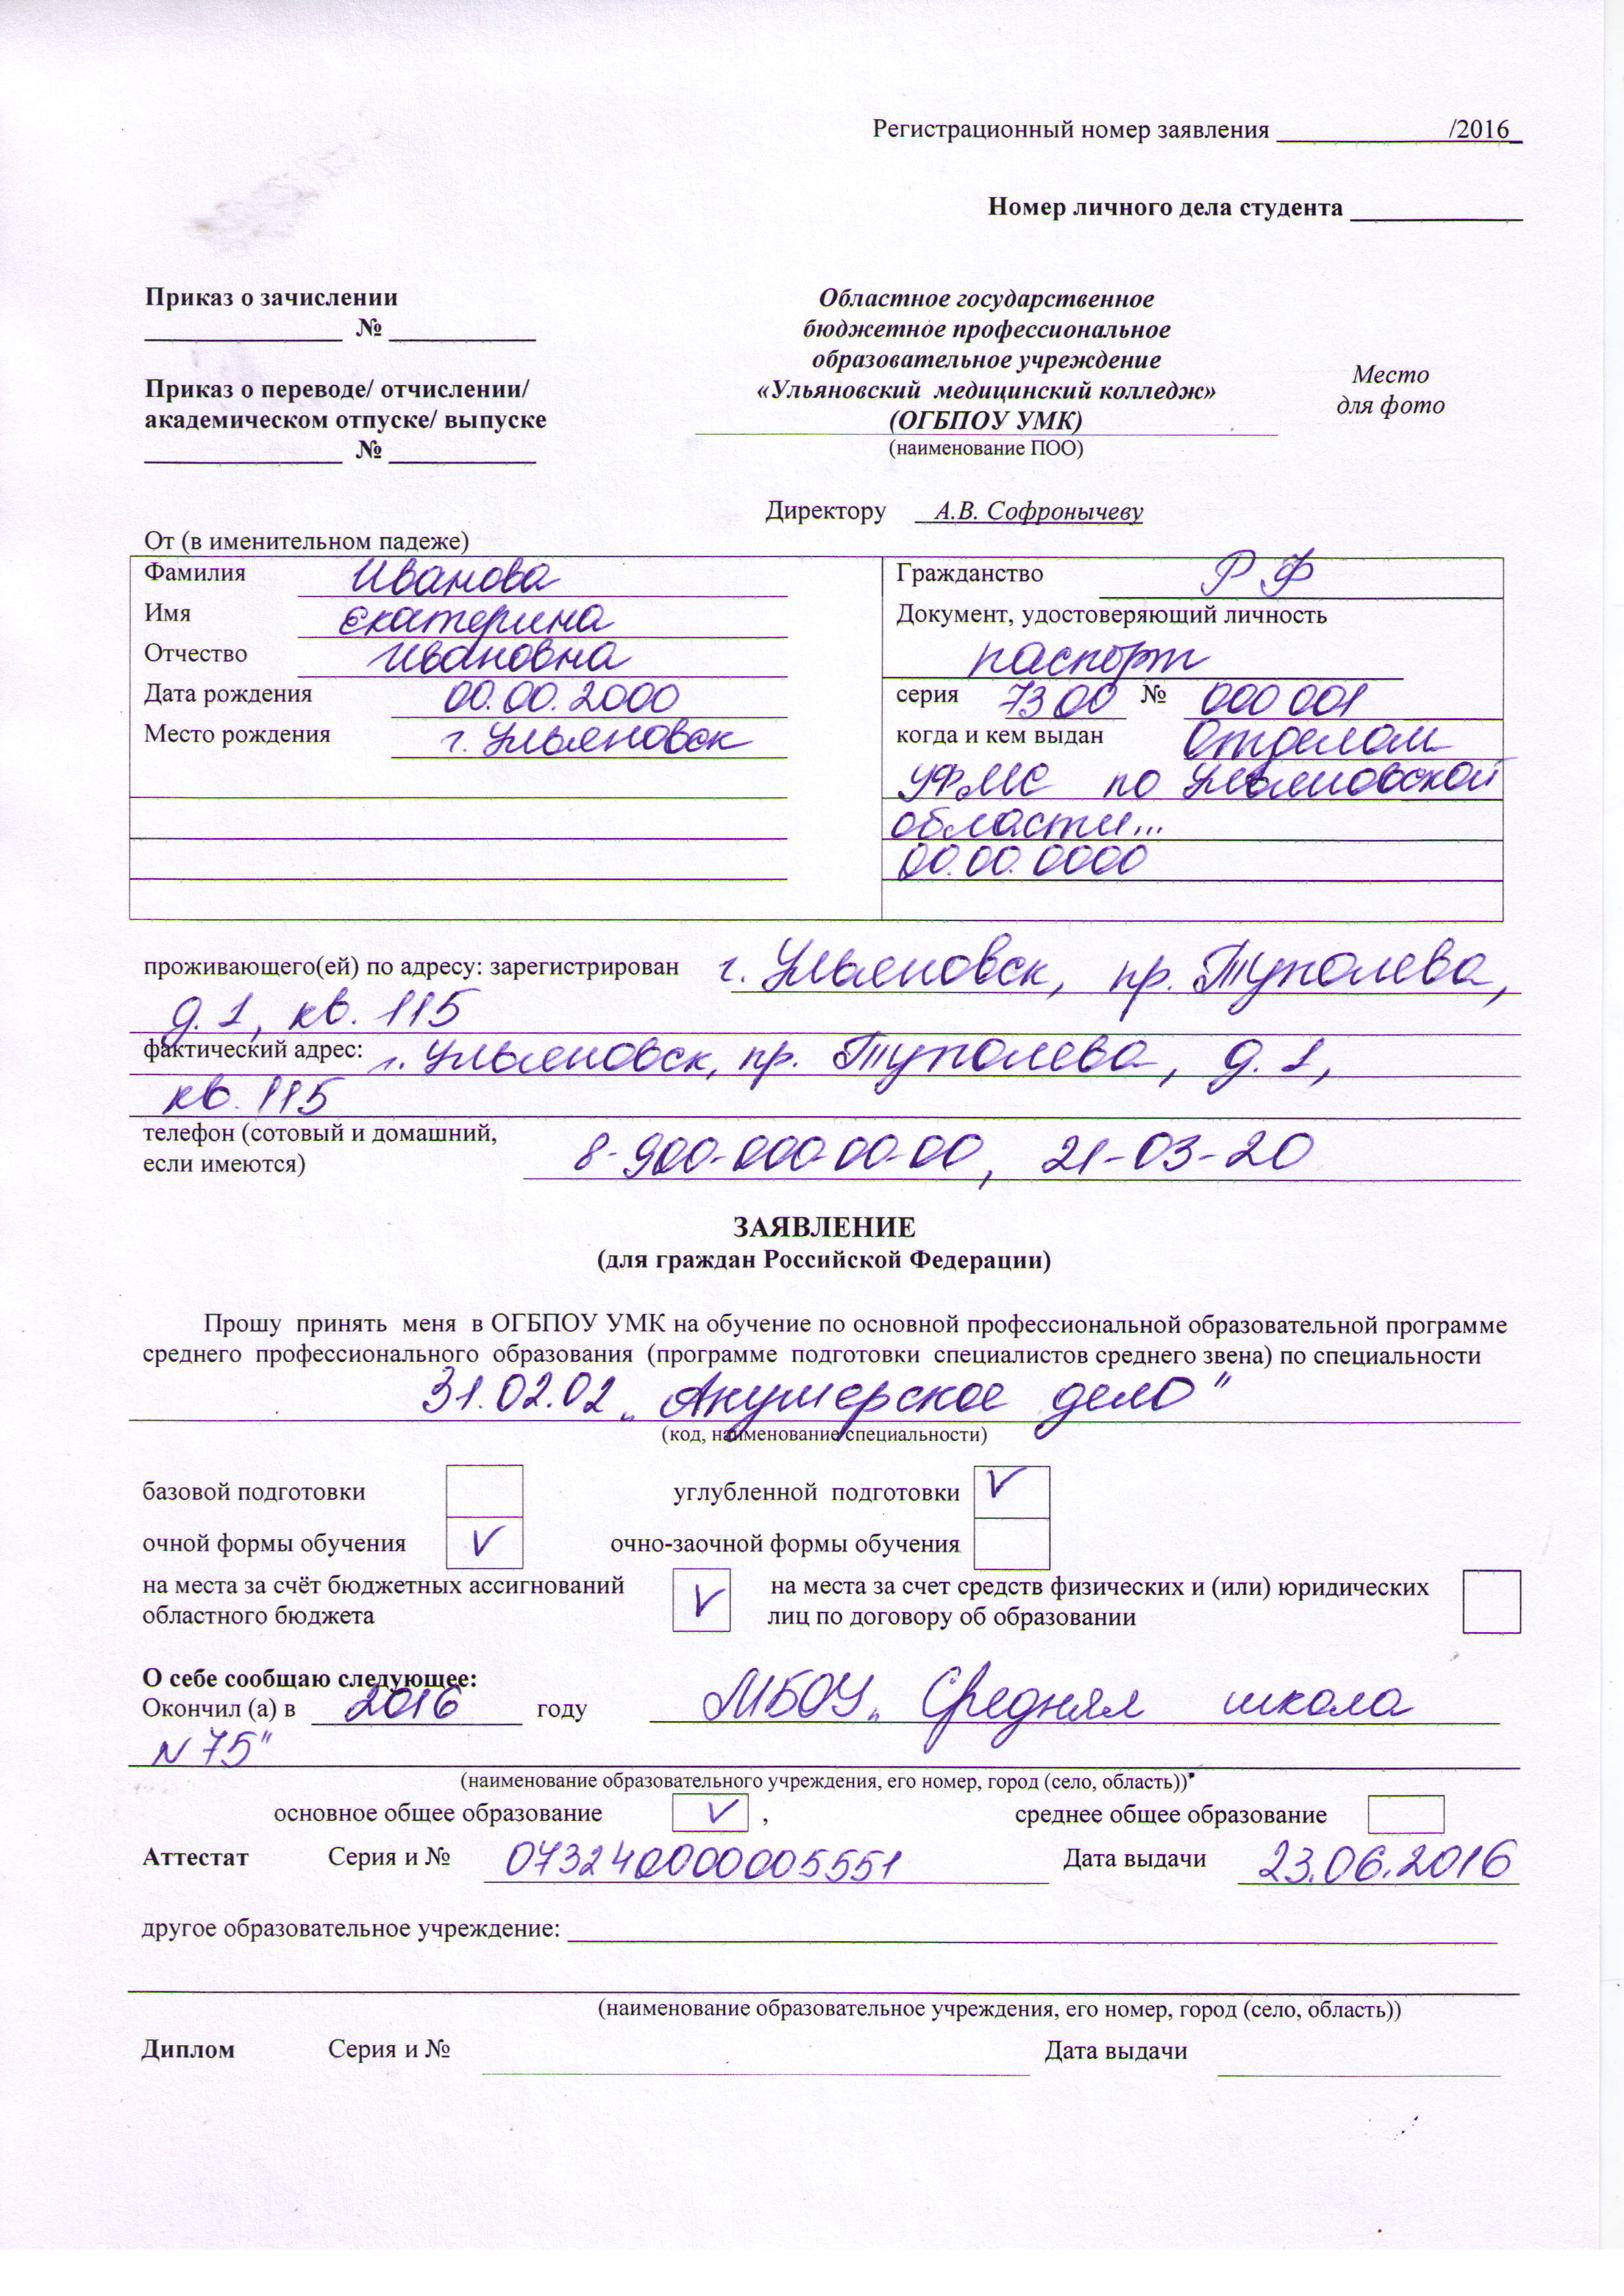 Регистрационный номер заявления ____________/2016_
Номер личного дела студента ____________
Приказ о зачислении
______________ № __________
Приказ о переводе/ отчислении/
академическом отпуске/ выпуске
______________ № __________
Областное государственное
бюджетное профессиональное
образовательное учреждение
«Ульяновский медицинский колледж»
(ОГБПОУ УМК)
(наименование ПОО)
Место
для фото
Директору А.В. Софронычеву
От (в именительном падеже)
Фамилия Иванова
Имя Екатерина
Отчество Ивановна
Дата рождения 00.00.2000
Место рождения г. Ульяновск
Гражданство РФ
Документ, удостоверяющий личность
паспорт
серия 73 00 № 000 001
когда и кем выдан Отделом
УФМС по Ульяновской
области...
00.00.0000
проживающего(ей) по адресу: зарегистрирован г. Ульяновск, пр. Туполева,
д. 1, кв. 115
фактический адрес: г. Ульяновск, пр. Туполева, д. 1,
кв. 115
телефон (сотовый и домашний,
если имеются) 8-900-000-00-00, 21-03-20
ЗАЯВЛЕНИЕ
(для граждан Российской Федерации)
Прошу принять меня в ОГБПОУ УМК на обучение по основной профессиональной образовательной программе
среднего профессионального образования (программе подготовки специалистов среднего звена) по специальности
31.02.02 „Акушерское дело"
(код, наименование специальности)
базовой подготовки углубленной подготовки V
очной формы обучения V очно-заочной формы обучения
на места за счёт бюджетных ассигнований
областного бюджета V
на места за счет средств физических и (или) юридических
лиц по договору об образовании
О себе сообщаю следующее:
Окончил (а) в 2016 году МБОУ „Средняя школа
N 75"
(наименование образовательного учреждения, его номер, город (село, область))
основное общее образование V , среднее общее образование
Аттестат Серия и № 07324000005551 Дата выдачи 23.06.2016
другое образовательное учреждение:
(наименование образовательное учреждения, его номер, город (село, область))
Диплом Серия и № Дата выдачи